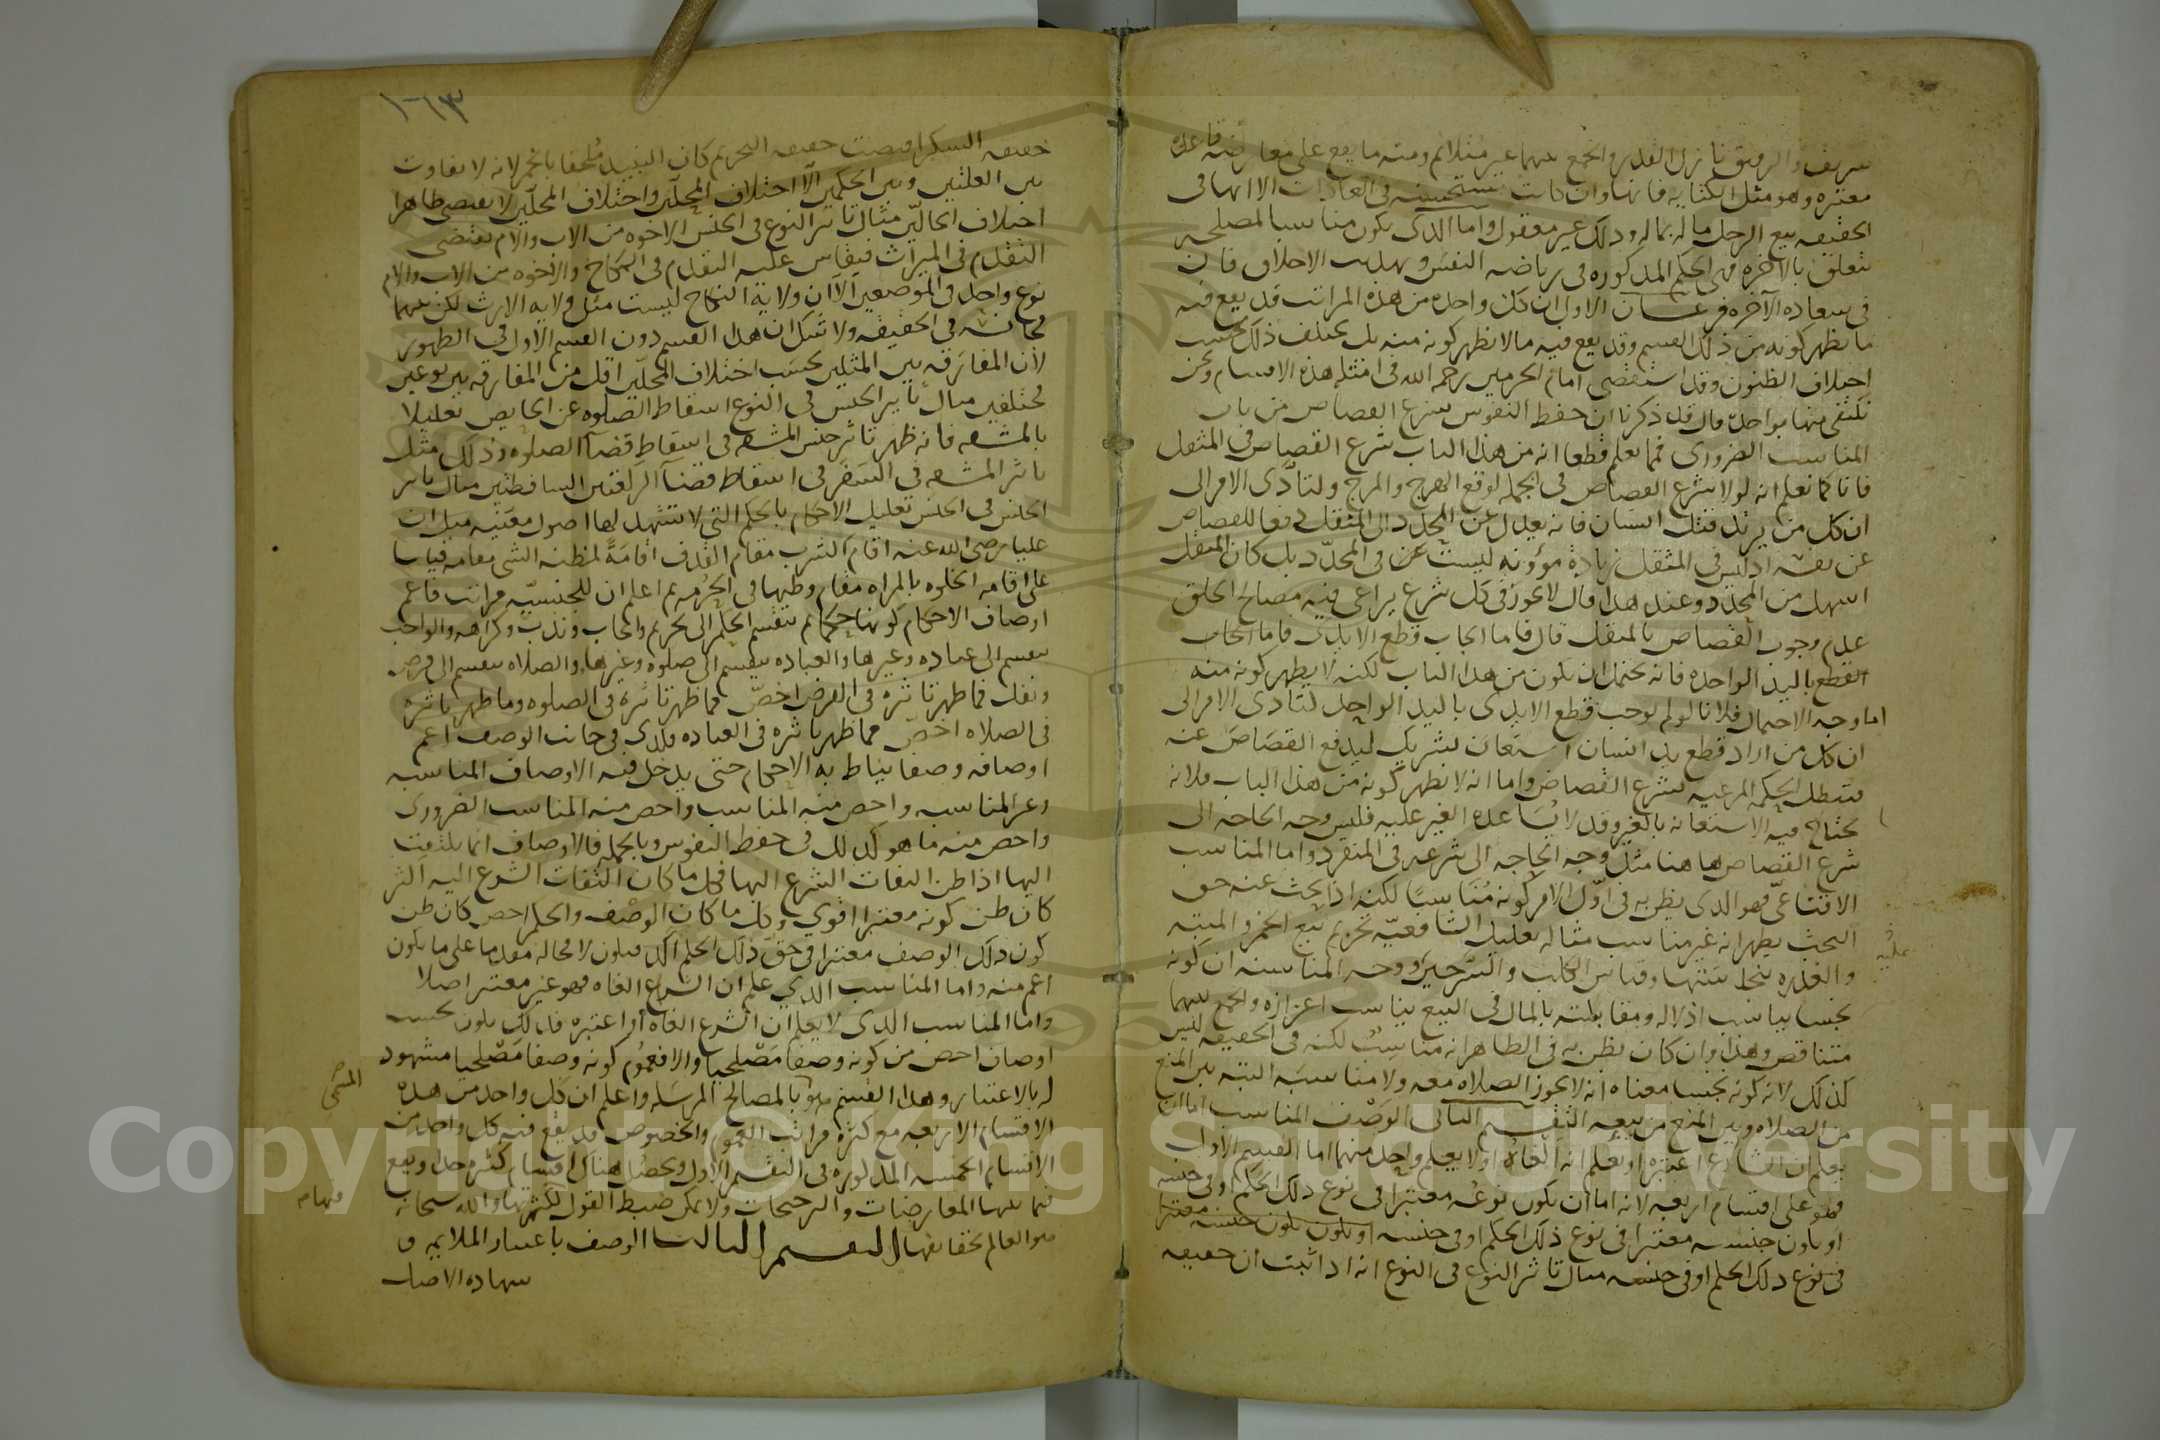 شريف والرقيق نازل القدر والجمع بينهما غير متلائم ومنه ما يقع على معارضة قاعدة
معتبرة وهو مثل الكتابة فانها وان كانت مستحسنة في العادات الا انها في
الحقيقة بيع الرجل ماله بماله وذلك غير معقول واما الذي يكون مناسبا لمصلحة
تتعلق بالآخرة فهي الحكم المذكورة في رياضة النفس وتهذيب الاخلاق فان
في سعادة الآخرة فرعان الاول ان كل واحدة من هذه المراتب قد يقع فيه
ما يظهر كونه من ذلك القسم وقد يقع فيه ما لا يظهر كونه منه بل يختلف ذلك بحسب
اختلاف الظنون وقد استقصى امام الحرمين رحمه الله في امثلة هذه الاقسام ونحن
نكتفي منها بواحد قال قد ذكرنا ان حفظ النفوس بشرع القصاص من باب
المناسب الضروري فمما يعلم قطعا انه من هذا الباب شرع القصاص في المثقل
فانا كما نعلم انه لولا شرع القصاص في الجملة لوقع الهرج والمرج ولتأدى الامر الى
ان كل من يريد قتل انسان فانه يعدل عن المحدد الى المثقل دفعا للقصاص
عن نفسه اذ ليس في المثقل زيادة مؤونة ليست في المحدد بل كان المثقل
اسهل من المحدد وعند هذا قال لا يجوز في كل شرع يراعى فيه مصالح الخلق
عدم وجوب القصاص بالمثقل قال فاما ايجاب قطع الايدي فاما ايجاب
القطع باليد الواحدة فانه يحتمل ان يكون من هذا الباب لكنه لا يظهر كونه منه
اما وجه الاحتمال فلانا لو لم نوجب قطع الايدي باليد الواحد لتأدى الامر الى
ان كل من اراد قطع يد انسان استعان بشريك ليدفع القصاص عنه
فتبطل الحكمة المرعية بشرع القصاص واما انه لا يظهر كونه من هذا الباب فلانه
يحتاج فيه الاستعانة بالغير وقد لا يساعده الغير عليه فليس وجه الحاجة الى
شرع القصاص هاهنا مثل وجه الحاجة الى شرعه في المنفرد واما المناسب
الاقناعي فهو الذي يظن به في اول الامر كونه مناسبا لكنه اذا بحث عنه حق
البحث يظهر انه غير مناسب مثاله تعليل الشافعية تحريم بيع الخمر والميتة
والعذرة بنجاستها وقياس الكلب والسرجين ووجه المناسبة ان كونه
نجسا يناسب اذلاله ومقابلته بالمال في البيع يناسب اعزازه والجمع بينهما
متناقض وهذا وان كان يظن به في الظاهر انه مناسب لكنه في الحقيقة ليس
كذلك لانه كونه نجسا معناه انه لا يجوز الصلاة معه ولا مناسبة البتة بين المنع
من الصلاة وبين المنع من بيعه التقسيم الثاني الوصف المناسب اما ان
يعلم ان الشارع اعتبره او يعلم انه الغاه او لا يعلم واحد منهما اما القسم الاول
فهو على اقسام اربعة لانه اما ان يكون نوعه معتبرا في نوع ذلك الحكم او في جنسه
او يكون جنسه معتبرا في نوع ذلك الحكم او في جنسه او يكون يكون جنسه معتبرا
في نوع ذلك الحكم او في جنسه مثال تاثير النوع في النوع انه اذا ثبت ان حقيقة
عليه
١٠٦٣
حقيقة السكر اقتضت حقيقة التحريم كان النبيذ ملحقا بالخمر لانه لا تفاوت
بين العلتين وبين الحكمين الا اختلاف المحلين واختلاف المحلين لا يقتضي ظاهرا
اختلاف الحالين مثال تاثير النوع في الجنس الاخوة من الاب والام تقتضي
التقدم في الميراث فيقاس عليه التقدم في النكاح والاخوة من الاب والام
نوع واحد في الموضعين الا ان ولاية النكاح ليست مثل ولاية الارث لكن بينهما
مجانسة في الحقيقة ولا شك ان هذا القسم دون القسم الاول في الظهور
لان المفارقة بين المثلين بحسب اختلاف المحلين اقل من المفارقة بين نوعين
مختلفين مثال تاثير الجنس في النوع اسقاط الصلوة عن الحايض تعليلا
بالمشقة فانه ظهر تاثير جنس المشقة في اسقاط قضاء الصلوة وذلك مثل
تاثير المشقة في السفر في اسقاط قضاء الركعتين الساقطتين مثال تاثير
الجنس في الجنس تعليل الاحكام بالحكم التي لا تشهد لها اصول معينة مثل ان
عليا رضي الله عنه اقام الشرب مقام القذف اقامة لمظنة الشي مقامه قياسا
على اقامة الخلوة بالمراه مقام وطيها في الحرمه ثم اعلم ان للجنسية مراتب فاعم
اوصاف الاحكام كونها حكما ثم تنقسم الحكم الى تحريم وايجاب وندب وكراهة والواجب
ينقسم الى عبادة وغيرها والعبادة تنقسم الى صلوة وغيرها والصلاة تنقسم الى فرض
ونفل فما ظهر تاثيره في الفرض اخص مما ظهر تاثيره في الصلوة وما ظهر تاثيره
في الصلاة اخص مما ظهر تاثيره في العبادة وكذى في جانب الوصف اعم
اوصافه وصفا يناط به الاحكام حتى يدخل فيه الاوصاف المناسبة
وغير المناسبة واخص منه المناسب واخص منه المناسب الضروري
واخص منه ما هو كذلك في حفظ النفوس وبالجملة فالاوصاف انما يلتفت
اليها اذا ظن التفات الشرع اليها فكل ما كان التفات الشرع اليه اكثر
كان ظن كونه معتبرا اقوى وكل ما كان الوصف والحكم اخص كان ظن
كون ذلك الوصف معتبرا في حق ذلك الحكم اكد فيكون لا محالة مقدما على ما يكون
اعم منه واما المناسب الذي علم ان الشرع الغاه فهو غير معتبر اصلا
واما المناسب الذي لا يعلم ان الشرع الغاه او اعتبره فذلك يكون بحسب
اوصاف اخص من كونه وصفا مصلحيا والا فعموم كونه وصفا مصلحيا مشهود
له بالاعتبار وهذا القسم هو بالمصالح المرسلة واعلم ان كل واحد من هذه
المسمى
الاقسام الاربعة مع كثرة مراتب العموم والخصوص قد يقع فيه كل واحد من
الاقسام الخمسة المذكورة في التقسيم الاول ويحصل هناك اقسام كثيرة جدا ويقع
فيما بينها المعارضات والترجيحات ولا يمكن ضبط القول لكثرتها والله سبحانه
فيها
هو العالم بحقايقها التقسيم الثالث الوصف باعتبار الملايمة و
شهادة الاصل
Copyright © King Saud University